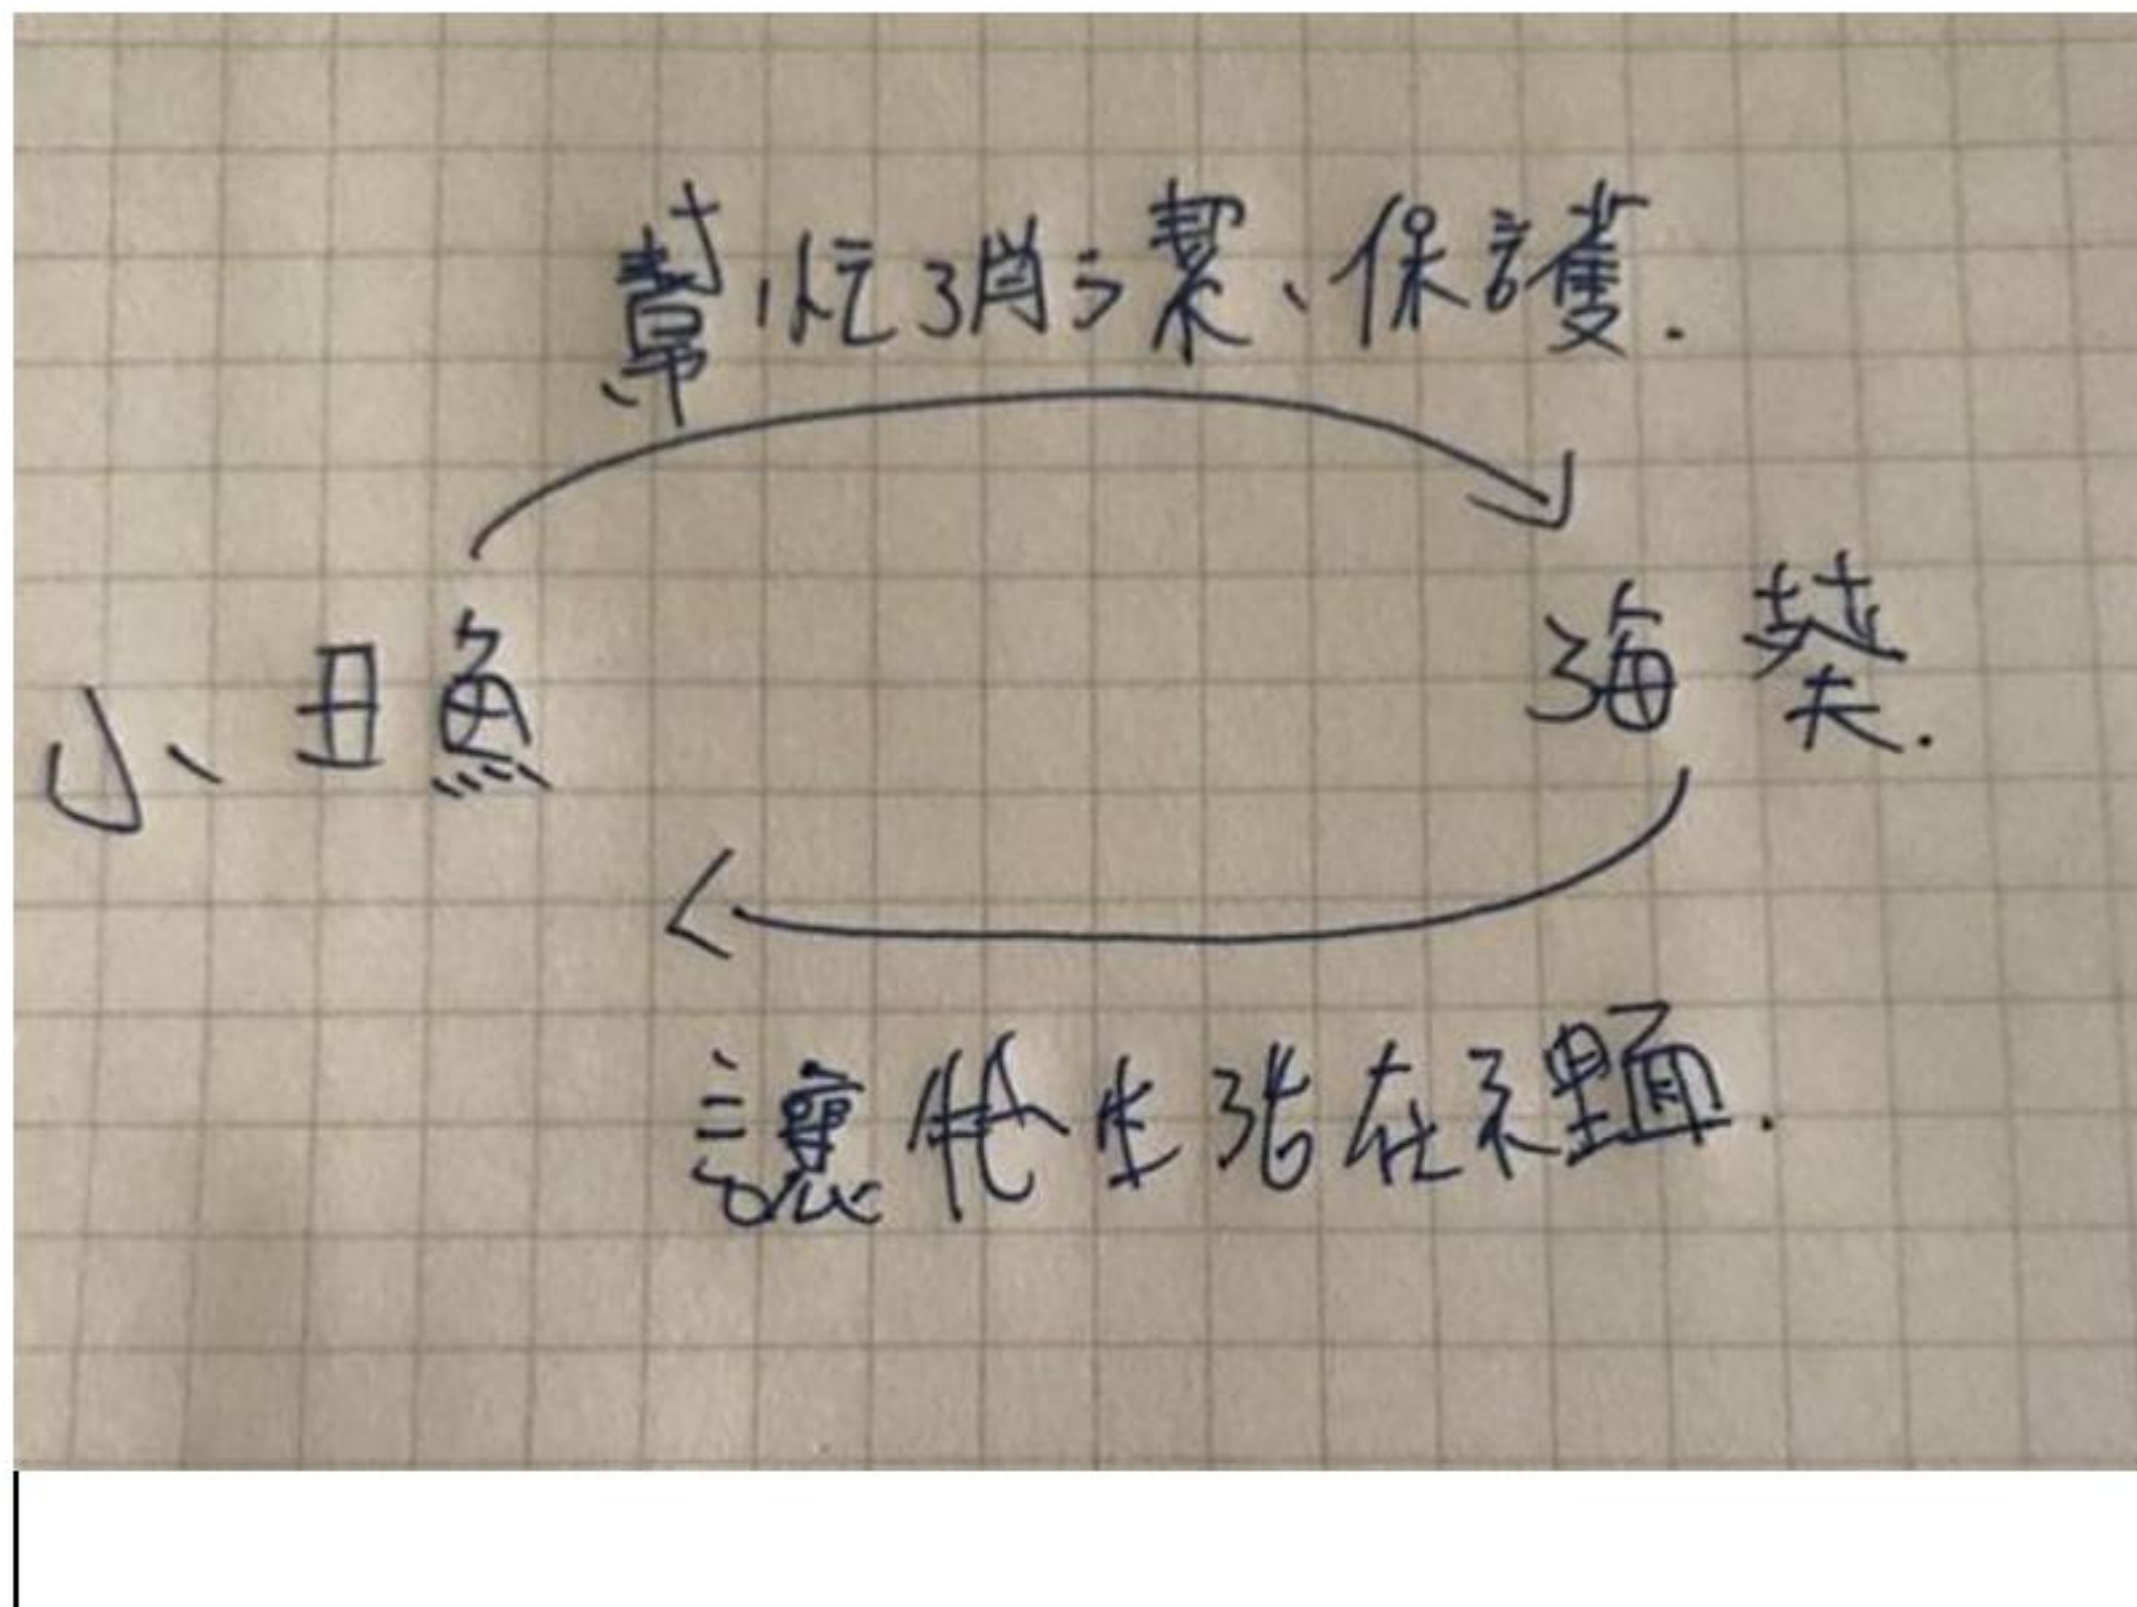 幫忙清潔、保護.
小丑魚
海葵.
讓牠生活在裡面.